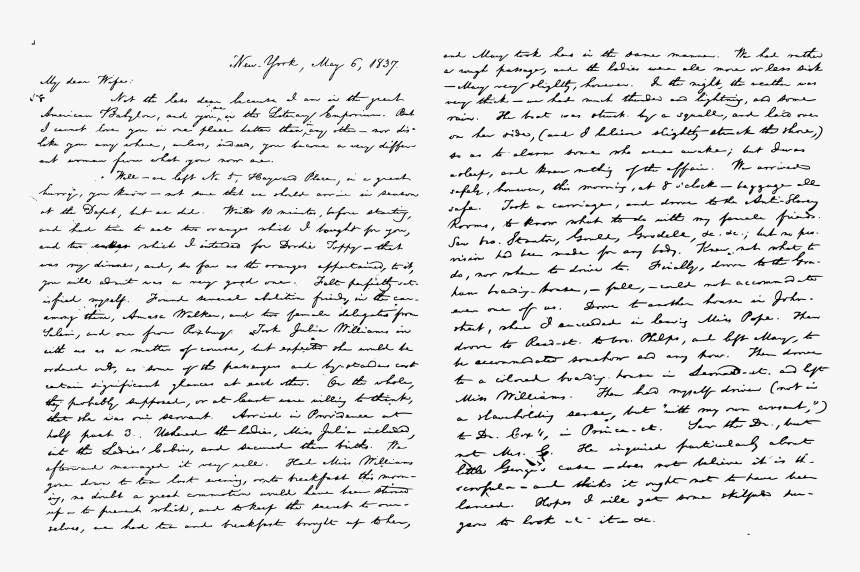 New-York, May 6, 1837
My dear Wife:
Not the less dear, because I am in the great
American Babylon, and you in the Literary Emporium. But
I cannot love you in one place better than any other — nor dis-
like you any where, unless, indeed, you become a very differ-
ent woman from what you now are.
Well — we left No. 5, Hayward Place, in a great
hurry, you know — not sure that we should arrive in season
at the Depot, but we did. Waited 10 minutes, before starting,
and had time to eat two oranges which I bought for you,
and two which I intended for Dordie Toppy — that
was my dinner, and, so far as the oranges appertained to it,
you will admit was a very good one. Felt perfectly sat-
isfied myself. Found several abolition friends in the cars —
among them, Amasa Walker, and two female delegates from
Salem, and one from Roxbury. Took Julia Williams in
with us as a matter of course, but expected she would be
ordered out, as some of the passengers and by-standers cast
certain significant glances at each other. On the whole,
they probably supposed, or at least were willing to think,
that she was our servant. Arrived in Providence at
half past 3. Ushered the ladies, Miss Julia included,
into the Ladies' Cabin, and secured them births. We
afterward managed it very well. Had Miss Williams
gone down to tea last evening, or to breakfast this morn-
ing, no doubt a great commotion would have been stirred
up — to prevent which, and to keep the secret to our-
selves, we had tea and breakfast brought up to her,
and Mary took hers in the same manner. We had rather
a rough passage, and the ladies were all more or less sick
— Mary very slightly, however. In the night, the weather was
very thick — we had much thunder and lightning, and some
rain. The boat was struck by a squall, and laid over
on her sides, (and I believe slightly struck the shore,)
so as to alarm some who were awake; but I was
asleep, and knew nothing of the affair. We arrived
safely, however, this morning, at 8 o'clock — baggage all
safe. Took a carriage, and drove to the Anti-Slavery
Rooms, to know what to do with my female friends.
Saw bro. Stanton, Gould, Goodell, &c. &c.; but no pro-
vision had been made for any body. Knew not what to
do, nor where to drive to. Finally, drove to the Gra-
ham boarding-house, — full, — could not accommodate
even one of us. Drove to another house in John-
street, where I succeeded in leaving Miss Pope. Then
drove to Read-st. to bro. Phelps, and left Mary, to
be accommodated somehow and any how. Then drove
to a colored boarding-house in Leonard-st. and left
Miss Williams. Then had myself driven (not in
a slaveholding sense, but "with my own consent,")
to Dr. Cox's, in Prince-st. Saw the Dr., but
not Mrs. C. He inquired particularly about
little George's case — does not believe it is
scrofula — and thinks it ought not to have been
lanced. Hopes I will get some skilful sur-
geon to look at it — &c.